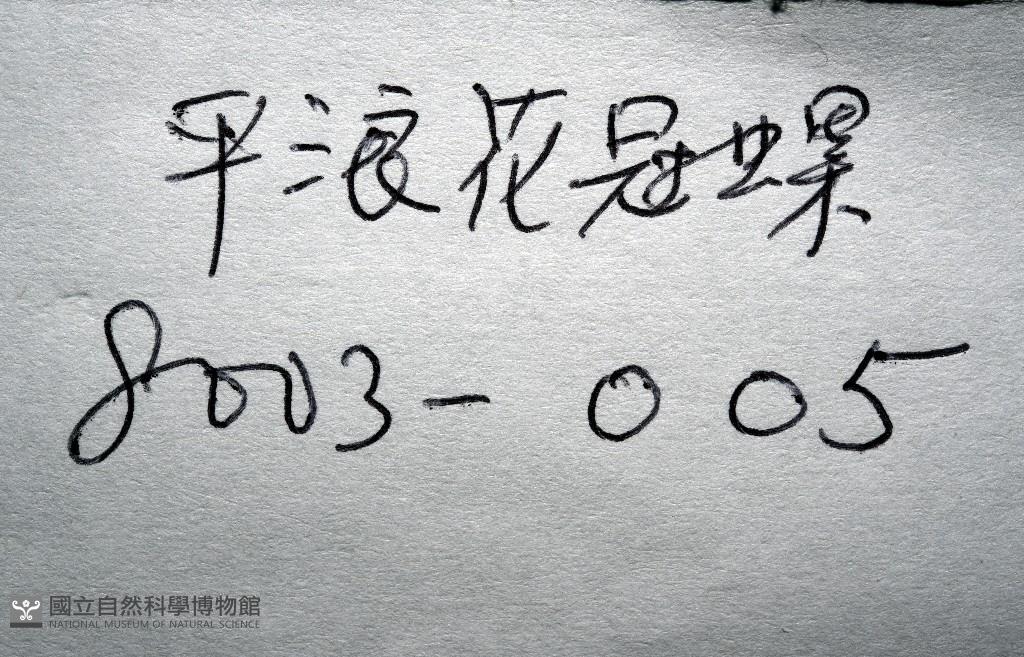 平浪花冠螺
8003-005
國立自然科學博物館
NATIONAL MUSEUM OF NATURAL SCIENCE